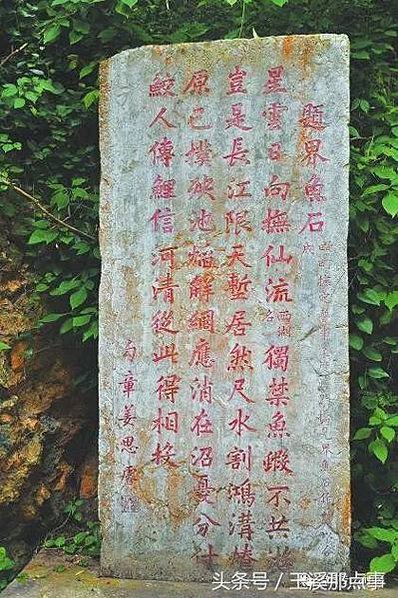 題界魚石
星雲日向撫仙流兩湖名獨禁魚蝦不共游
豈是長江限天塹居然尺水割鴻溝
原已撲殃池焰解網應消在沼憂分付
鮫人傳鯉信河清從此得相投
句章姜思睿
头条号／玉溪那点事